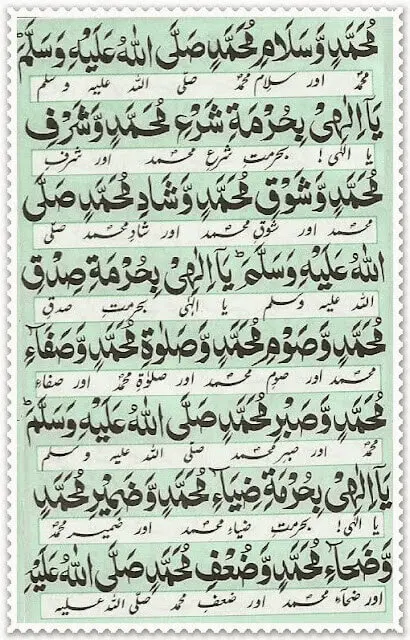 مُحَمَّدٍ وَّسَلَامِ مُحَمَّدٍ صَلَّى اللهُ عَلَيْهِ وَسَلَّمَ ؕ
محمدؐ اور سلام محمدؐ صلی اللہ علیہ وسلم
يَآ اِلٰهِيْ بِحُرْمَةِ شَرْعِ مُحَمَّدٍ وَّشَرَفِ
یا الٰہی! بحرمت شرع محمدؐ اور شرف
مُحَمَّدٍ وَّشَوْقِ مُحَمَّدٍ وَّشَادِ مُحَمَّدٍ صَلَّى
محمدؐ اور شوق محمدؐ اور شاد محمدؐ صلی
اللهُ عَلَيْهِ وَسَلَّمَ ؕ يَآ اِلٰهِيْ بِحُرْمَةِ صِدْقِ
اللہ علیہ وسلم یا الٰہی بحرمتِ صدق
مُحَمَّدٍ وَّصَوْمِ مُحَمَّدٍ وَّصَلٰوةِ مُحَمَّدٍ وَّصَفَآءِ
محمدؐ اور صوم محمدؐ اور صلوٰۃ محمدؐ اور صفاء
مُحَمَّدٍ وَّصَبْرِ مُحَمَّدٍ صَلَّى اللهُ عَلَيْهِ وَسَلَّمَ ؕ
محمدؐ اور صبر محمدؐ صلی اللہ علیہ وسلم
يَآ اِلٰهِيْ بِحُرْمَةِ ضِيَآءِ مُحَمَّدٍ وَّضَمِيْرِ مُحَمَّدٍ
یا الٰہی! بحرمتِ ضیاء محمدؐ اور ضمیر محمدؐ
وَّضُحَآءِ مُحَمَّدٍ وَّضُعْفِ مُحَمَّدٍ صَلَّى اللهُ عَلَيْهِ
اور ضحاء محمدؐ اور ضعفِ محمدؐ صلی اللہ علیہ